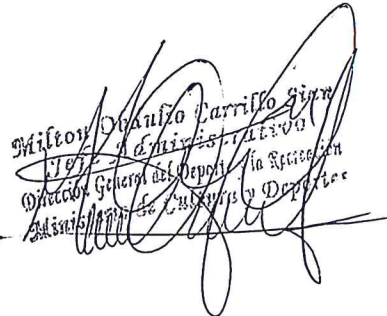 Milton Carrillo
Jefe Administrativo
Dirección General del Deporte y la Recreación
Ministerio de Cultura y Deportes